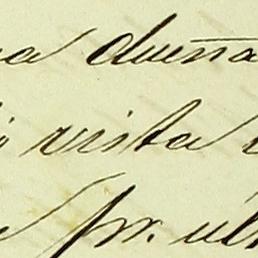 a dueña
vista
pr. ult